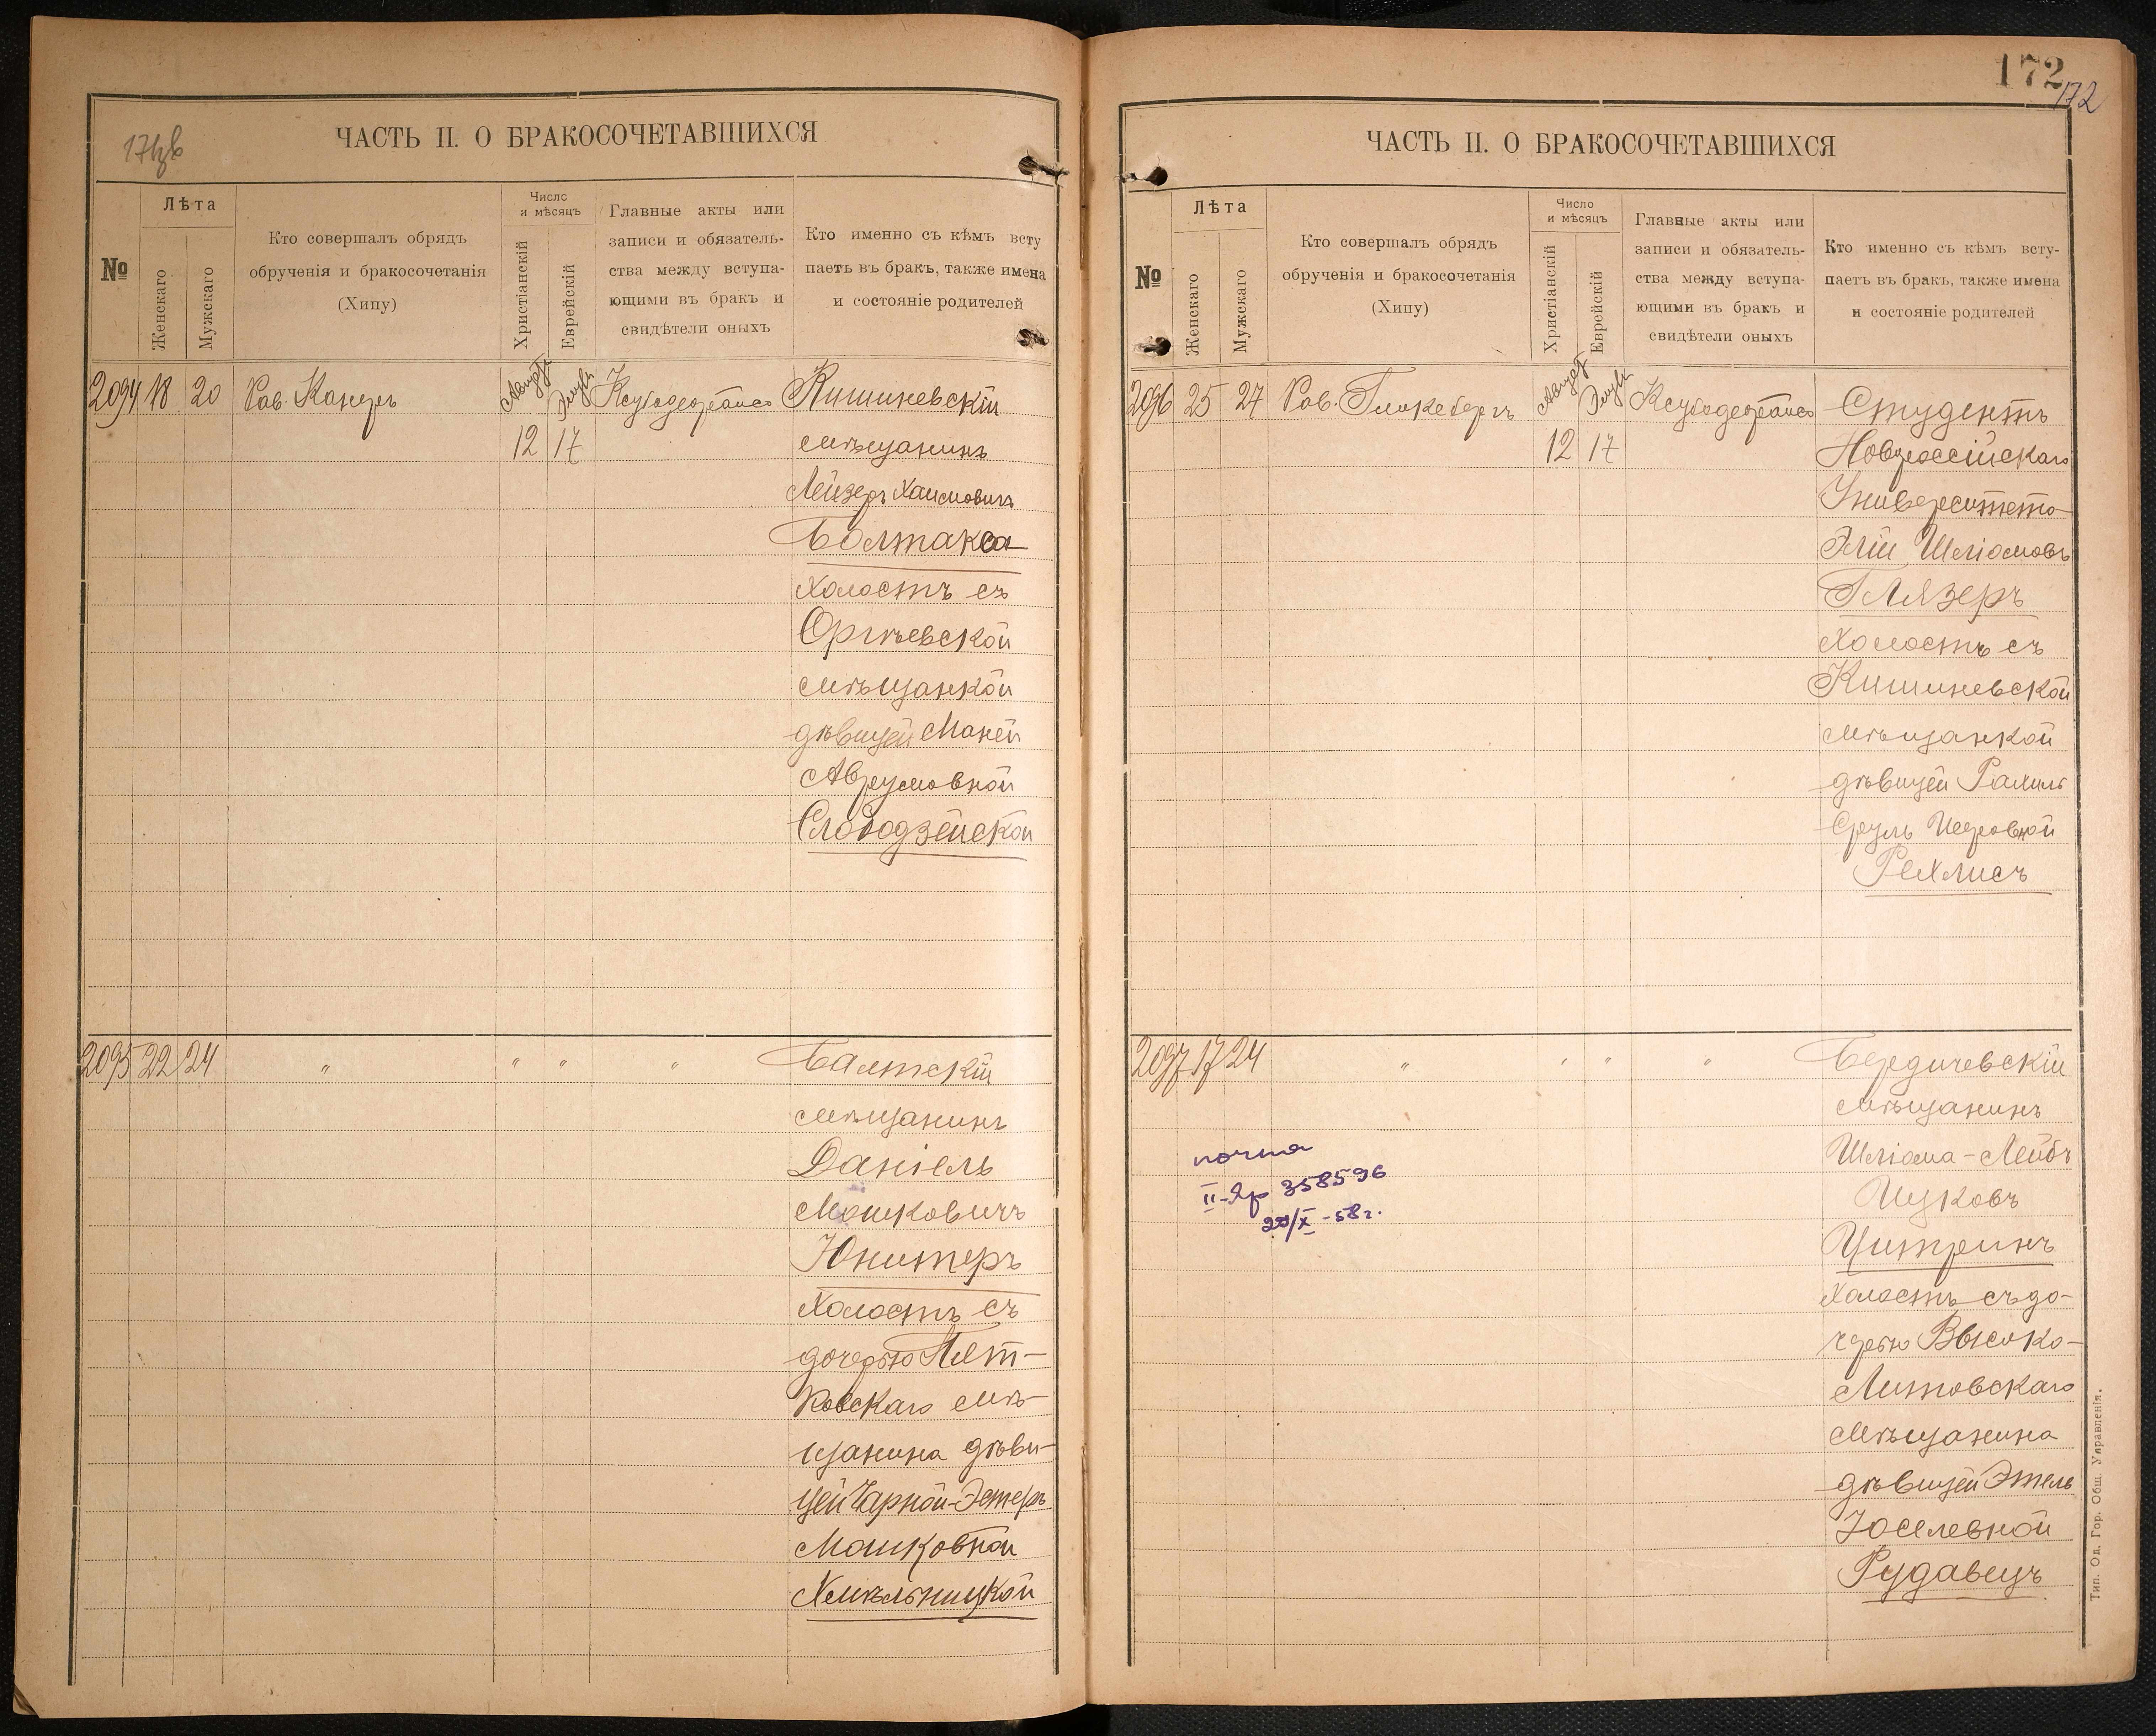 171об
ЧАСТЬ II. О БРАКОСОЧЕТАВШИХСЯ
№
Лѣта
Женскаго
Мужскаго
Кто совершалъ обрядъ
обрученія и бракосочетанія
(Хипу)
Число
и мѣсяцъ
Христіанскій
Еврейскій
Главные акты или
записи и обязатель-
ства между вступа-
ющими въ бракъ и
свидѣтели оныхъ
Кто именно съ кѣмъ всту
паетъ въ бракъ, также имена
и состояніе родителей
2094 18 20 Рав. Канеръ Август 12 Элулъ 17
Кишиневскій
мѣщанинъ
Лейзеръ Хаимовичъ
Болтакса
холостъ съ
Оргѣевской
мѣщанкой
дѣвицей Маней
Аврумовной
Слободзейской
2095 22 24 " " " "
Балтскій
мѣщанинъ
Даніель
Мошковичъ
Юнитеръ
холостъ съ
дочерью Пет-
ровскаго мѣ-
щанина дѣви-
цей Чарной-Эстеръ
Мошковной
Хмѣльницкой
172
172
ЧАСТЬ II. О БРАКОСОЧЕТАВШИХСЯ
№
Лѣта
Женскаго
Мужскаго
Кто совершалъ обрядъ
обрученія и бракосочетанія
(Хипу)
Число
и мѣсяцъ
Христіанскій
Еврейскій
Главные акты или
записи и обязатель-
ства между вступа-
ющими въ бракъ и
свидѣтели оныхъ
Кто именно съ кѣмъ всту-
паетъ въ бракъ, также имена
и состояніе родителей
2096 25 27 Рав. Гликсбергъ Август 12 Элулъ 17
Студентъ
Новороссійскаго
Университета
Элій Шліомовъ
Глязеръ
холостъ съ
Кишиневской
мѣщанкой
дѣвицей Рахиль
Сруль Исеровной
Рехлисъ
2097 17 24 " " " "
Бердичевскій
мѣщанинъ
Шліома-Лейбъ
Ицковъ
Цитринъ
холостъ съ до-
черью Высоко-
Литовскаго
мѣщанина
дѣвицей Этель
Іоселевной
Рудавецъ
почта
II-Яр 358596
/X-58г.
Тип. Од. Гор. Общ. Управленія.